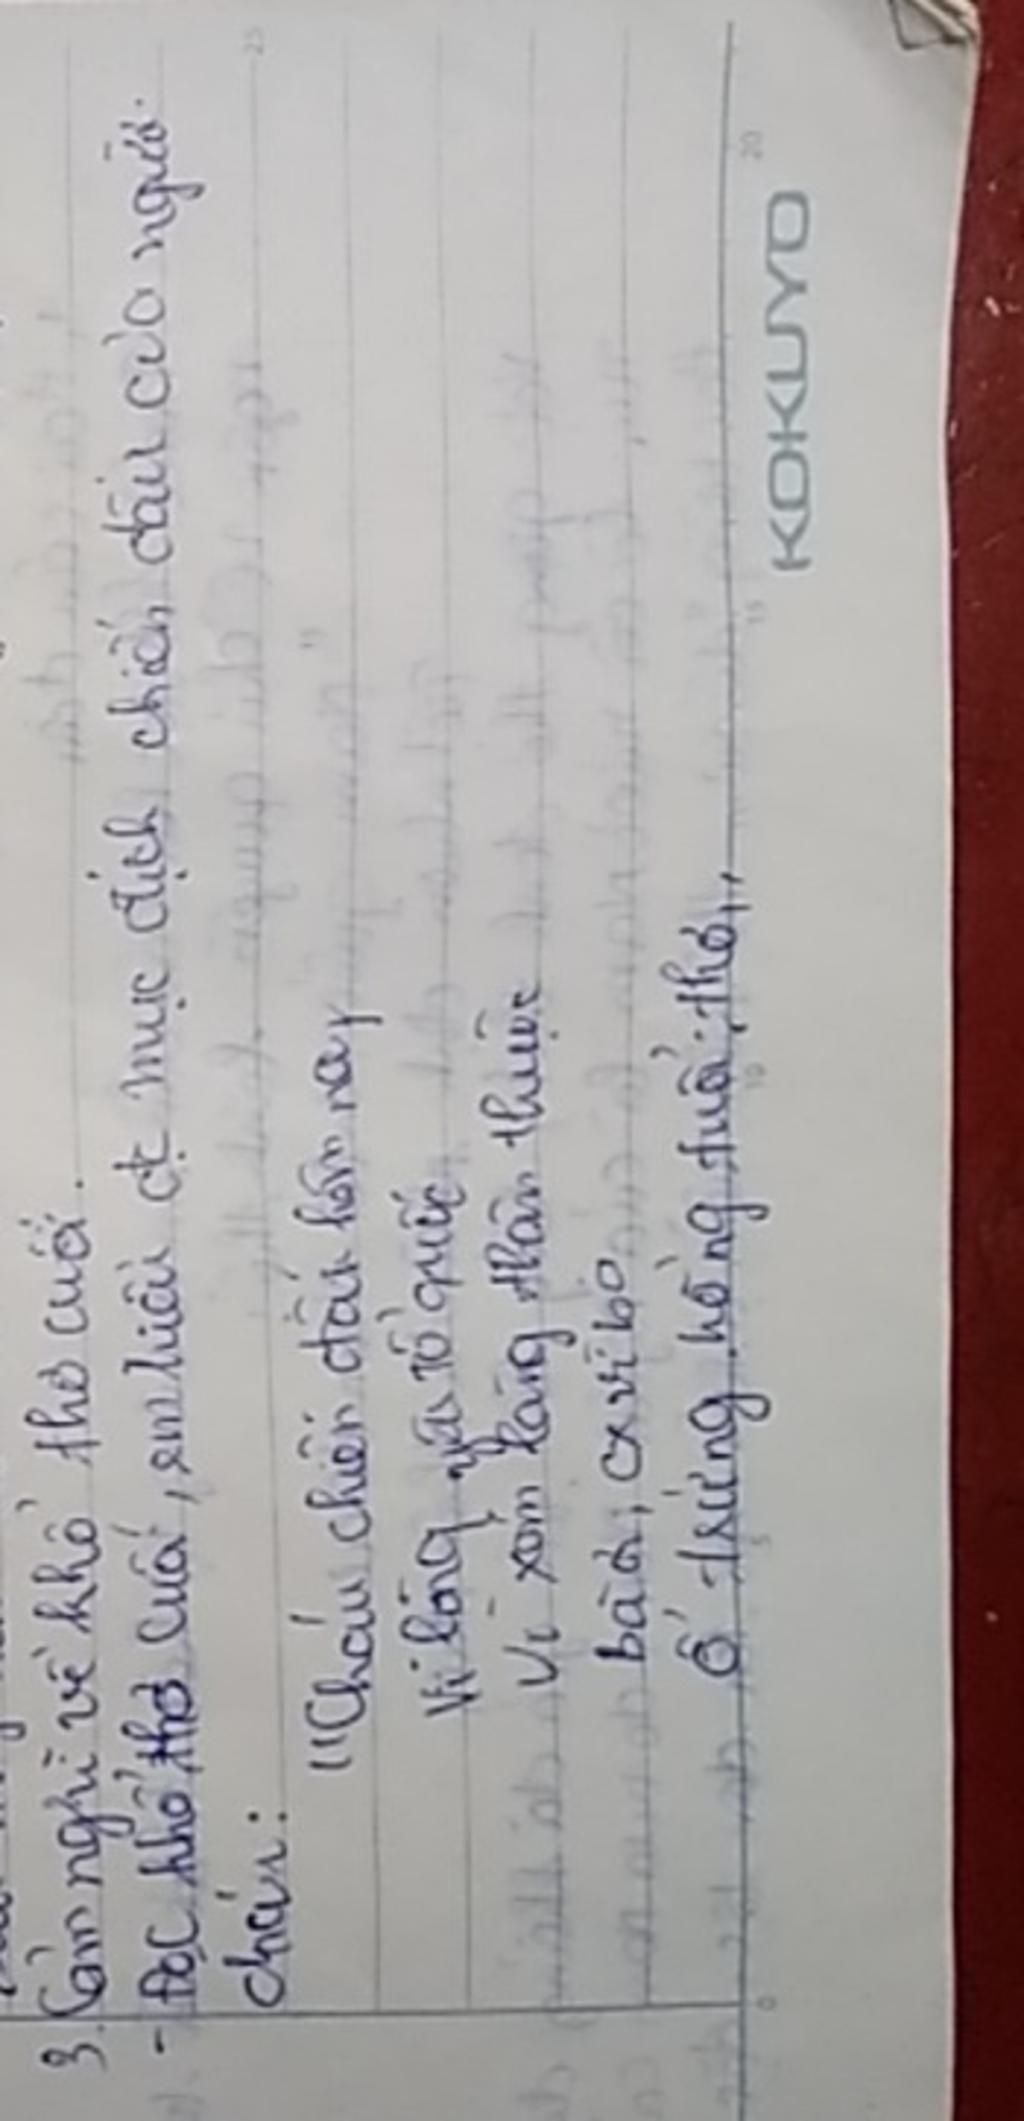 3. Cảm nghĩ về khổ thơ cuối.
- Đọc khổ thơ cuối, em hiểu đt mục đích chiến đấu của người
cháu:
"Cháu chiến đấu hôm nay
Vì lòng yêu Tổ quốc
Vì xóm làng thân thuộc
bà ơi, cx vì bà
Ổ trứng hồng tuổi thơ,,
KOKUYO
0 5 10 15 20
25